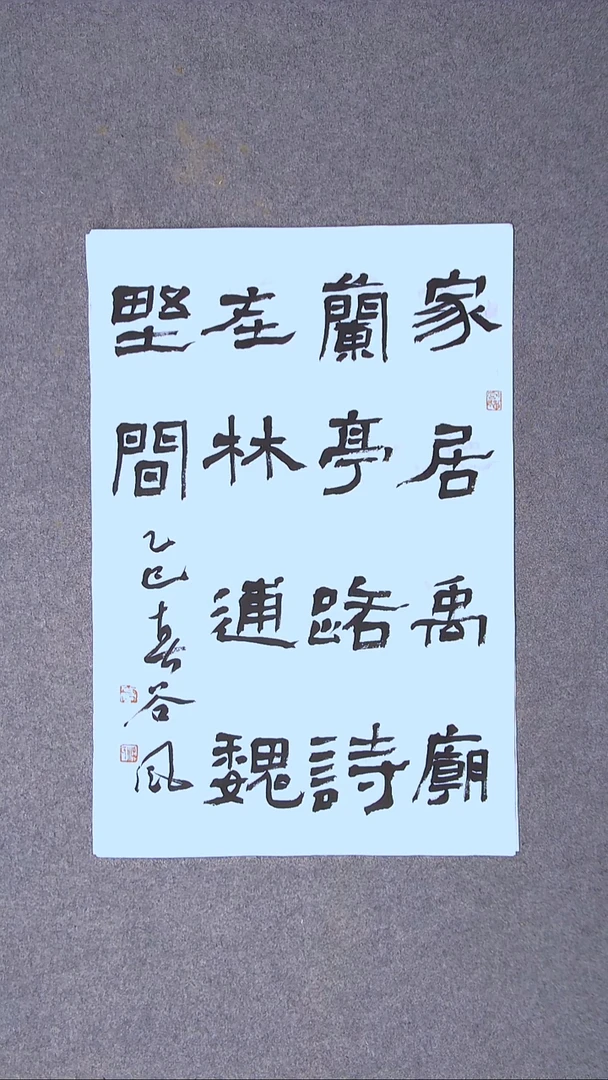 家居禹廟
蘭亭路詩
在林逋魏
野間
乙巳春谷風